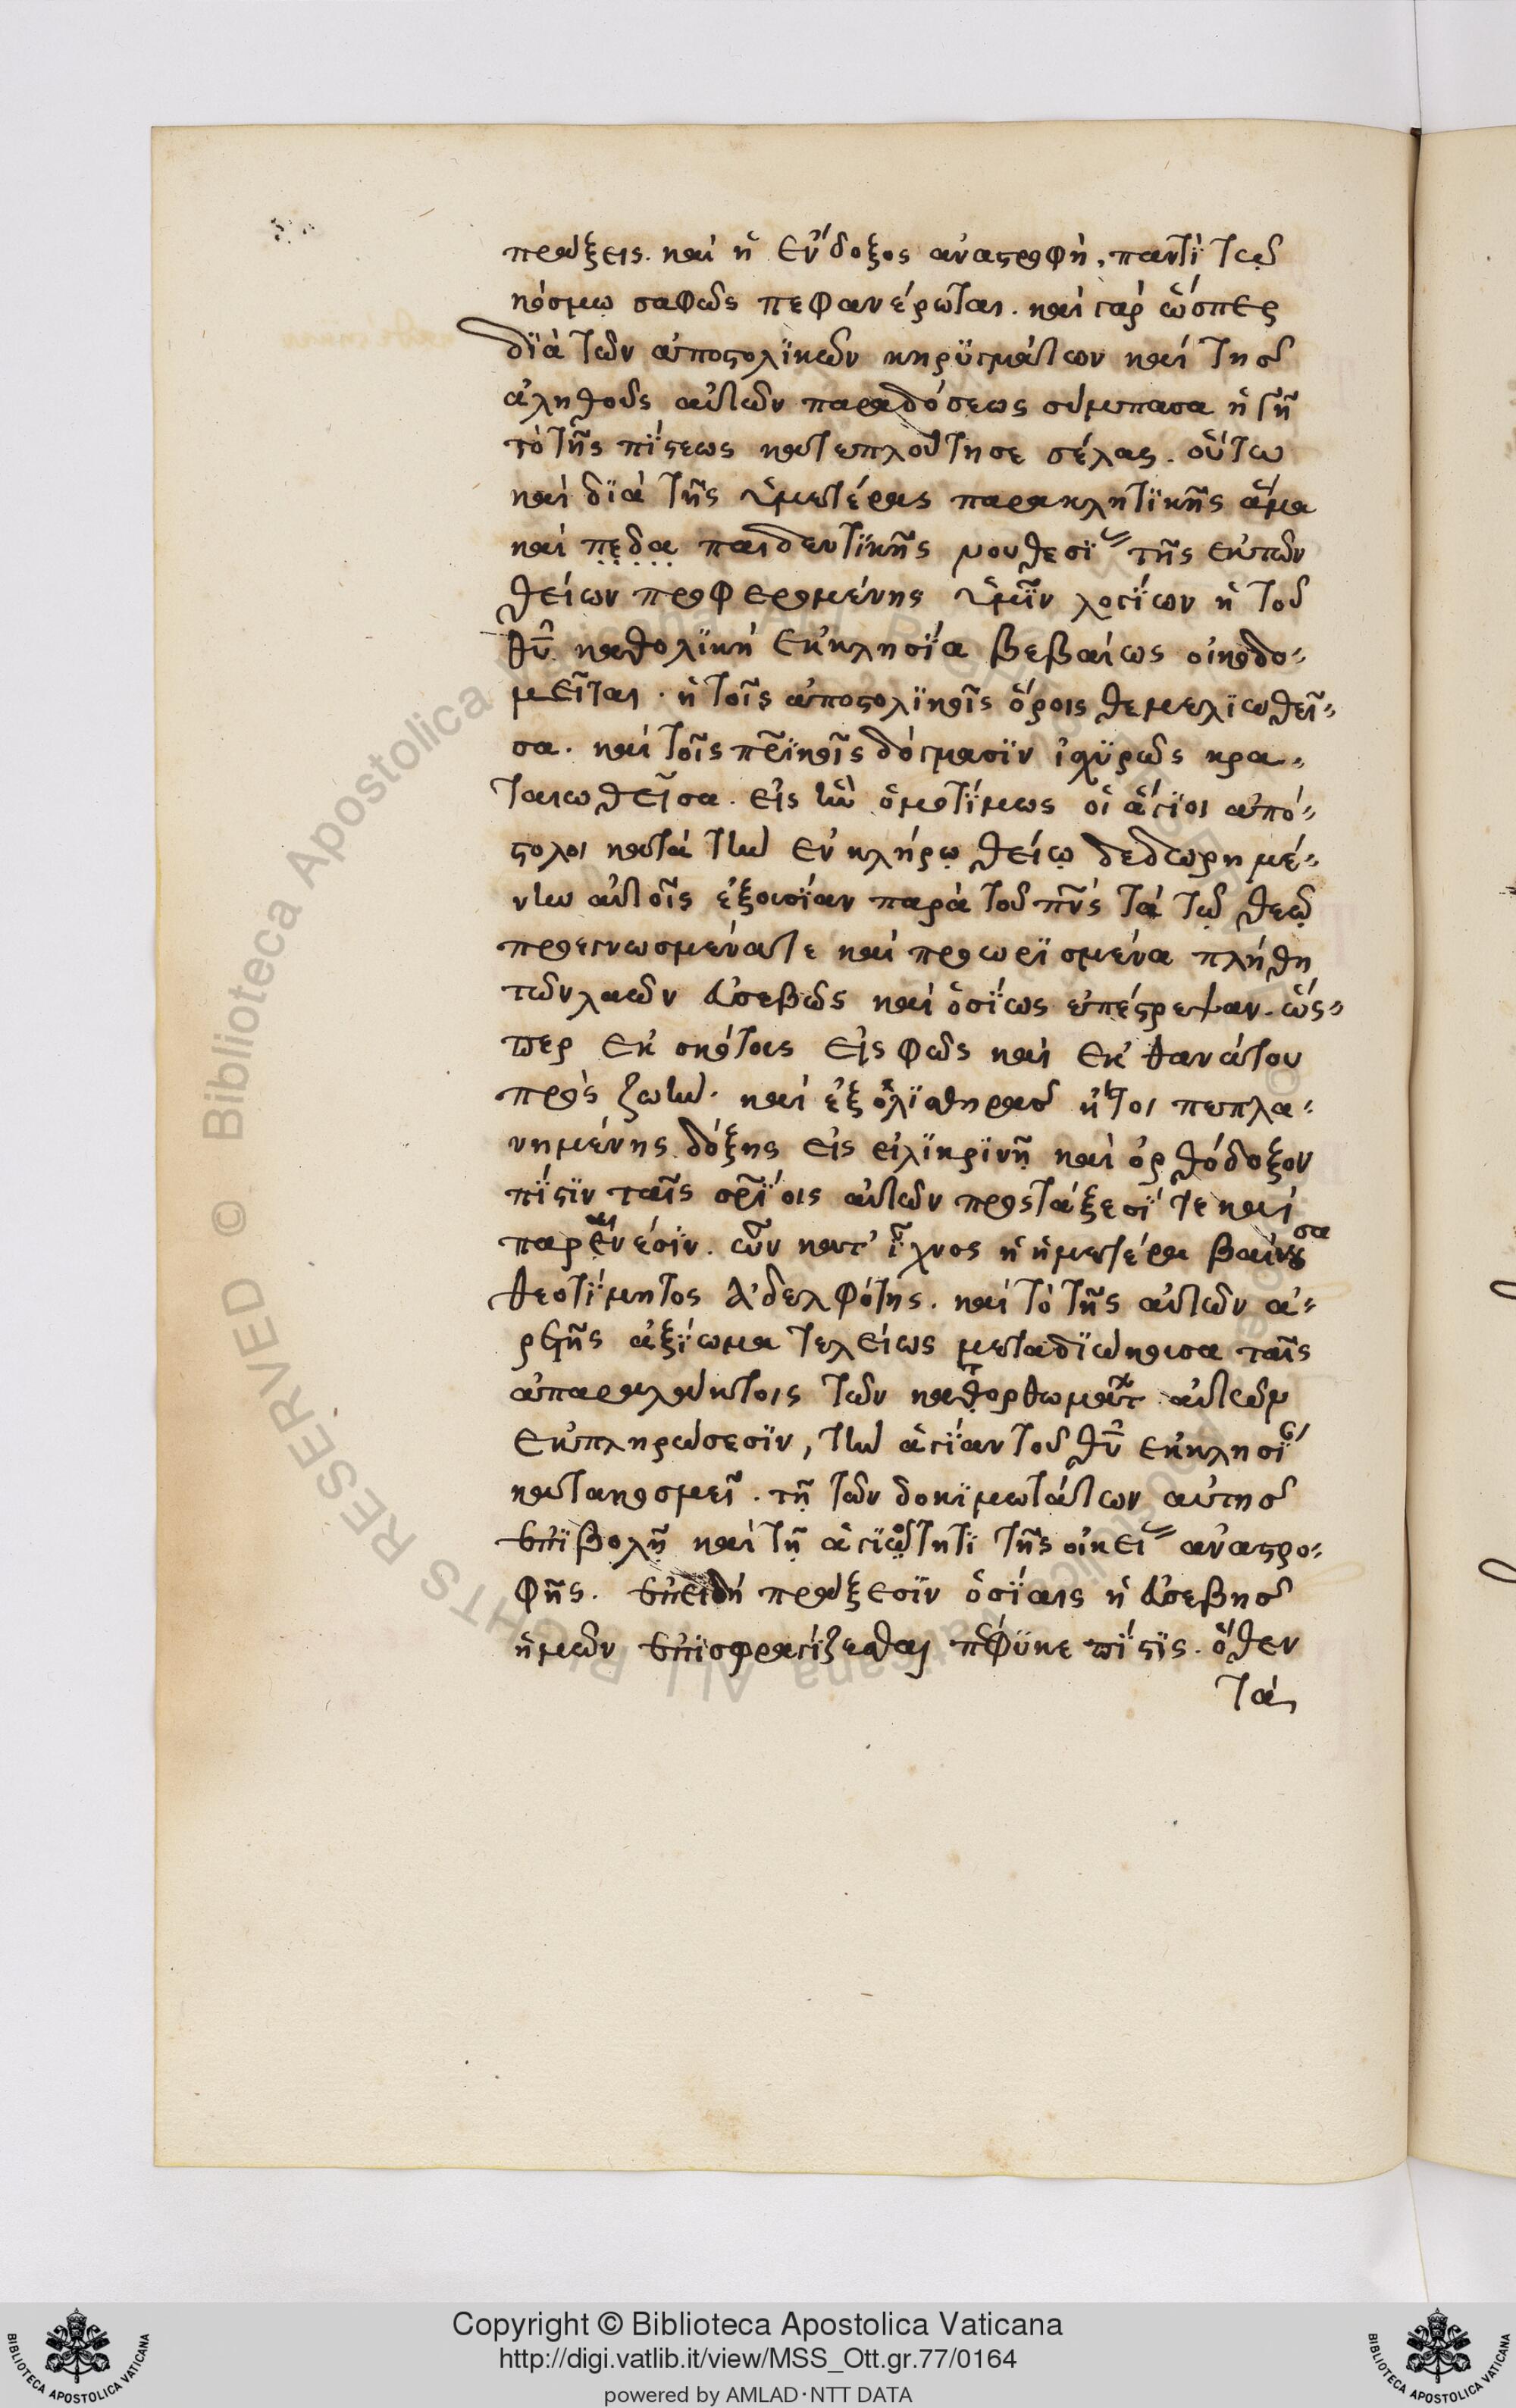 πράξεις. καὶ ἡ ἔνδοξος ἀναστροφὴ, παντὶ τῶ
κόσμω σαφῶς πεφανέρωται. καὶ γὰρ ὥσπερ
διὰ τῶν ἀποστολικῶν κηρυγμάτων καὶ τῆς
ἀληθοῦς αὐτῶν παραδόσεως σύμπασα ἡ γῆ
τὸ τῆς πίστεως κατεπλούτησε σέλας. οὕτω
καὶ διὰ τῆς ὑμετέρας παρακλητικῆς ἅμα
καὶ πεδα παιδευτικῆς νουθεσί τῆς ἐκ τῶν
θείων προφερομένης ὑμῖν λογίων ἡ τοῦ
θυ καθολικὴ ἐκκλησία βεβαίως οἰκοδο-
μεῖται. ἡ τοῖς ἀποστολικοῖς ὅροις θεμελιωθεῖ-
σα. καὶ τοῖς πρικοῖς δόγμασιν ἰσχυρῶς κρα-
ταιωθεῖσα. εἰς ἣν ὁμοτίμως οἱ ἅγιοι ἀπό-
στολοι κατὰ τὴν ἐν κλήρω θείω δεδωρημέ-
νην αὐτοῖς ἐξουσίαν παρὰ τοῦ πνς τὰ τῶ θεῶ
προεγνωσμένα τε καὶ προωρισμένα πλήθη
τῶν λαῶν εὐσεβῶς καὶ ὁσίως ἐπέστρεψαν. ὥσ-
περ ἐκ σκότους εἰς φῶς καὶ ἐκ θανάτου
πρὸς ζωὴν. καὶ ἐξ ὀλισθηρᾶς ἤτοι πεπλα-
νημένης δόξης εἰς εἰλικρινῆ καὶ ὀρθόδοξον
πίστιν ταῖς σρίοις αὐτῶν προστάξεσί τε καὶ
παραινέσιν. ὧν κατ' ἴχνος ἡ ἡμετέρα βαίνουσα
θεοτίμητος ἀδελφότης. καὶ τὸ τῆς αὐτῶν ἀ-
ρετῆς ἀξίωμα τελείως μεταδιώκουσα ταῖς
ἀπαραλείπτοις τῶν κατορθωμάτ αὐτῶν
ἐκπληρώσεσιν, τὴν ἁγίαν τοῦ θυ ἐκκλησί
κατακοσμεῖ. τῆ τῶν δοκιμωτάτων αὐτῆς
ἐπιβολῆ καὶ τῆ ἁγιότητι τῆς οἰκεί ἀναστρο-
φῆς. ἐπειδὴ πράξεσιν ὁσίαις ἡ εὐσεβὴς
ἡμῶν ἐπισφραγίζεσθαι πέφυκε πίστις. ὅθεν
τὰ
Copyright © Biblioteca Apostolica Vaticana
http://digi.vatlib.it/view/MSS_Ott.gr.77/0164
powered by AMLAD·NTT DATA